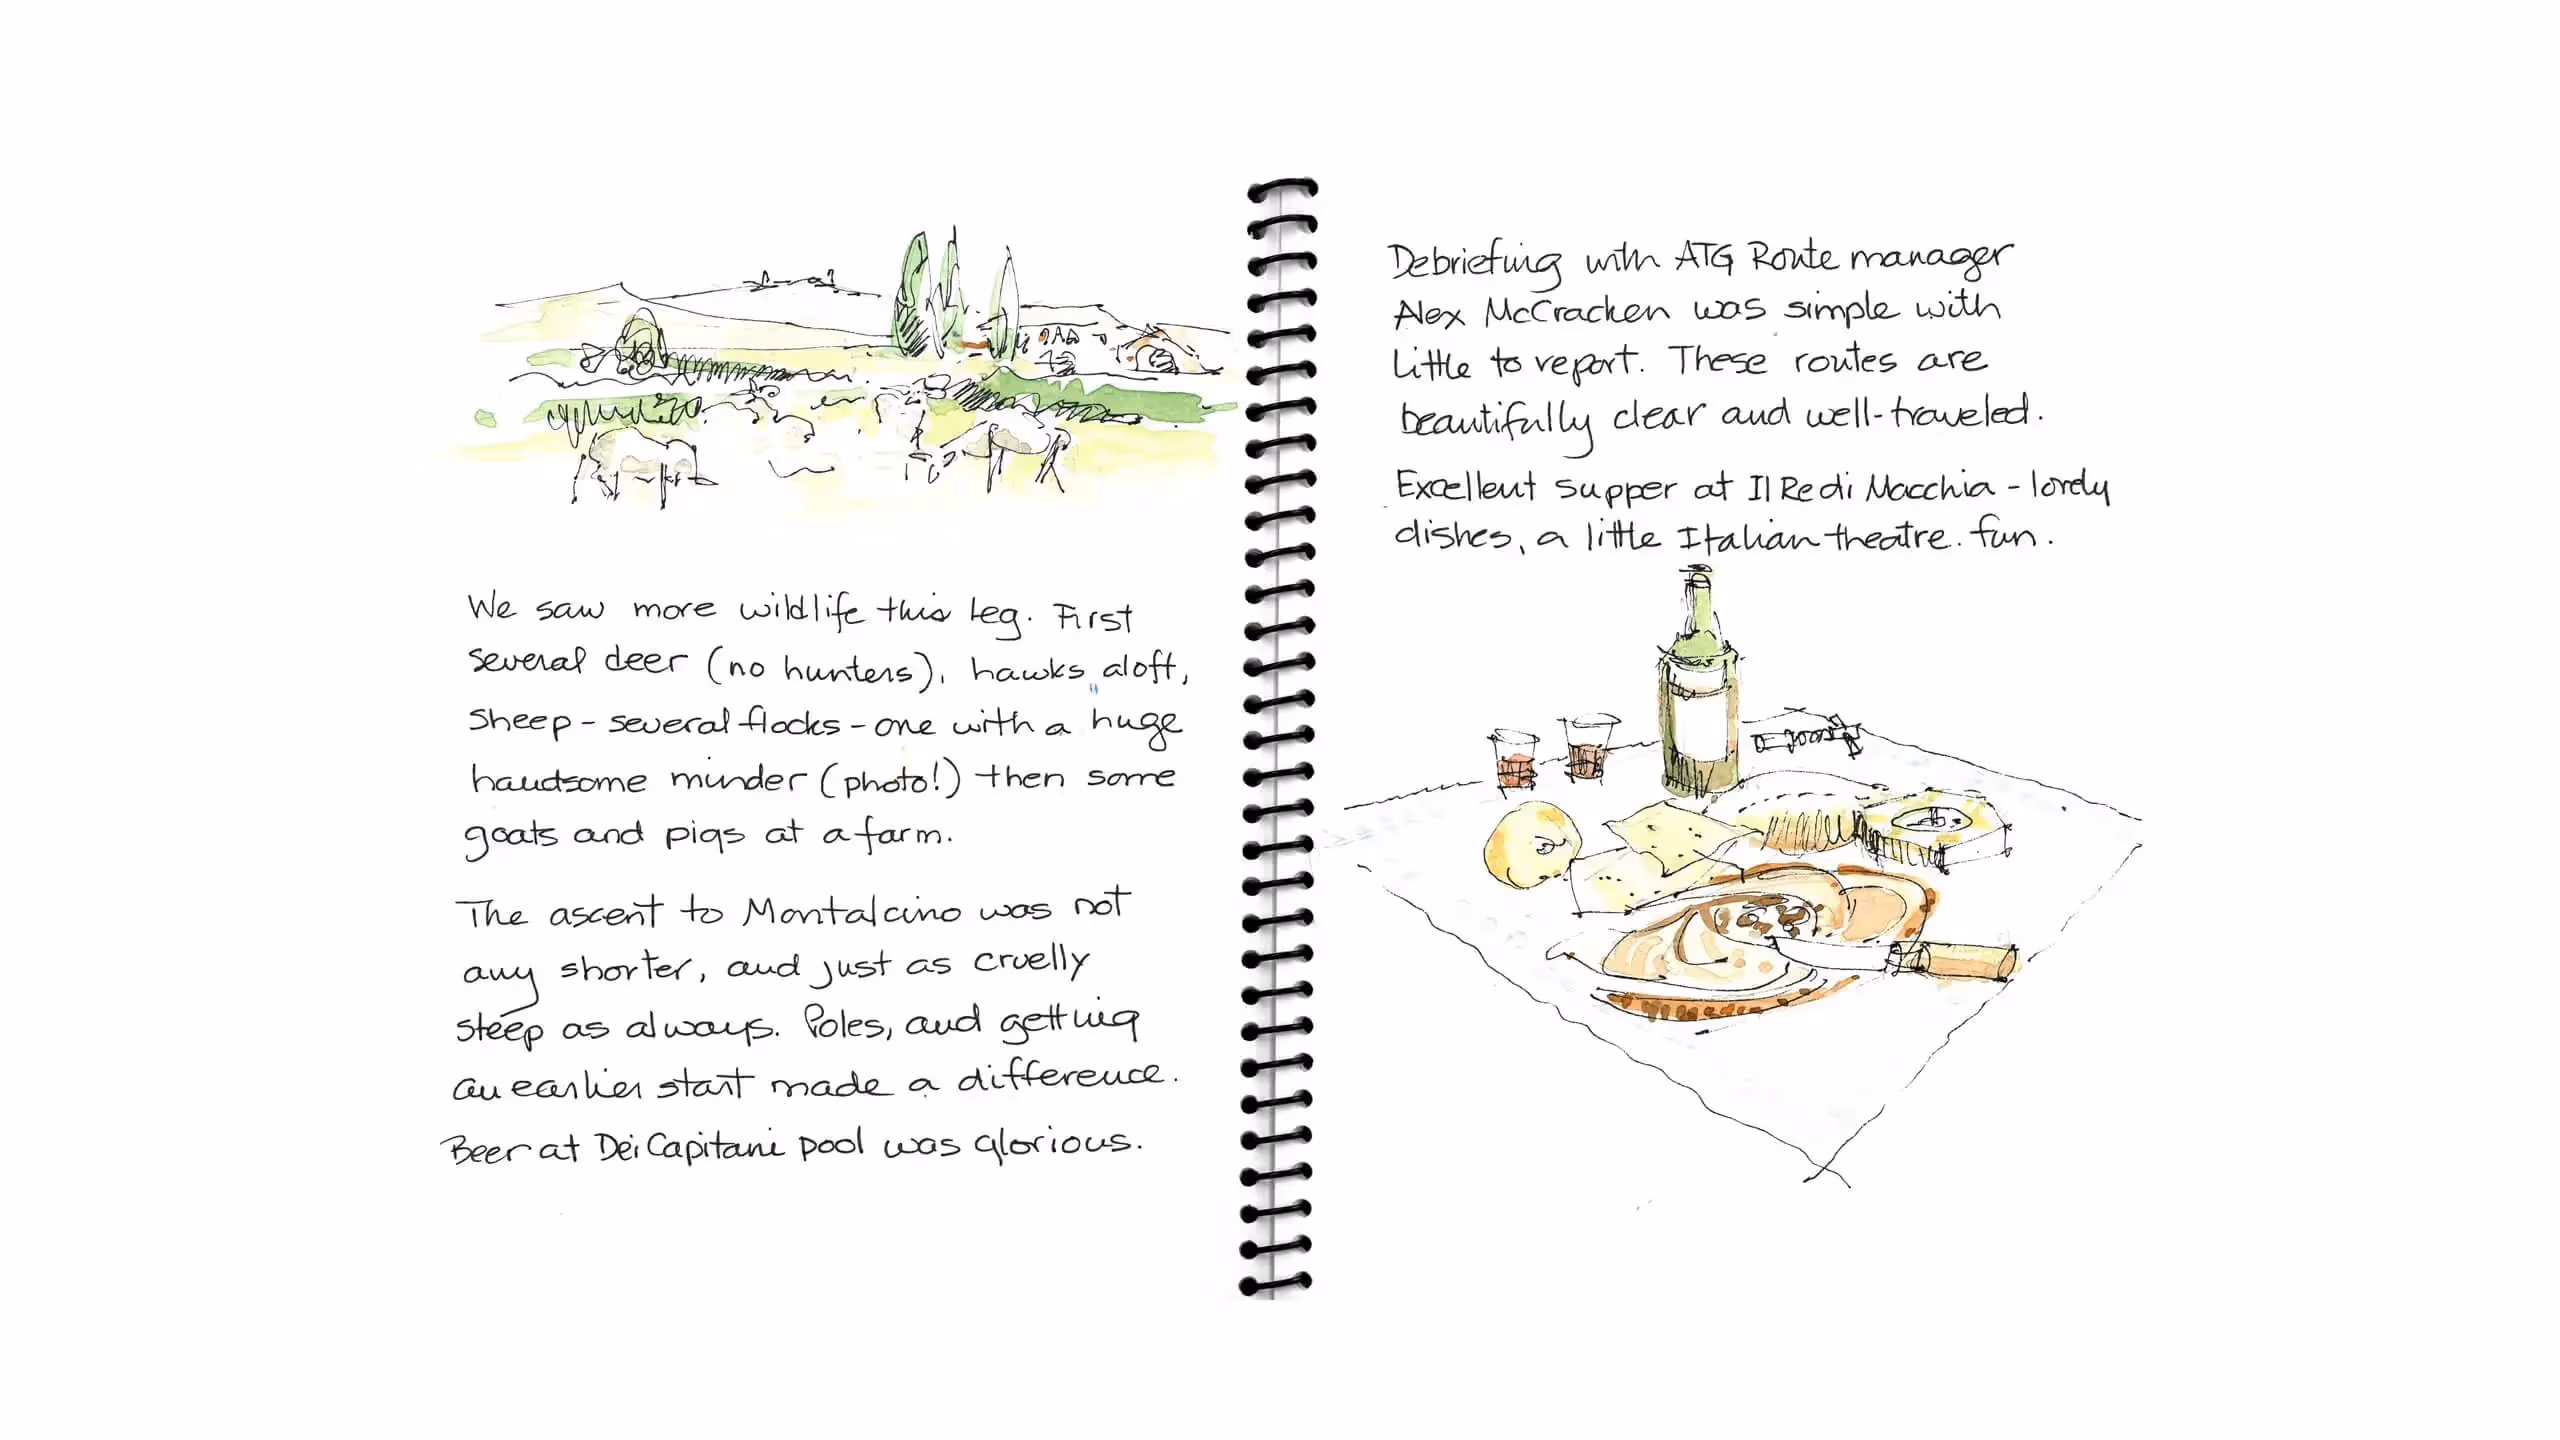 We saw more wildlife this leg. First
several deer (no hunters), hawks aloft,
sheep - several flocks - one with a huge
handsome minder (photo!) then some
goats and pigs at a farm.
The ascent to Montalcino was not
any shorter, and just as cruelly
steep as always. Poles, and getting
an earlier start made a difference.
Beer at Dei Capitani pool was glorious.
Debriefing with ATG Route manager
Alex McCracken was simple with
little to report. These routes are
beautifully clear and well-traveled.
Excellent supper at Il Re di Macchia - lovely
dishes, a little Italian theatre. fun.